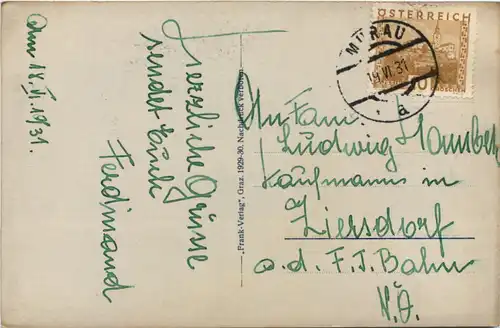 Am 18. VI. 1931.
Herzliche Grüsse
sendet Euch
Ferdinand
"Frank-Verlag", Graz. 1929-30. Nachdruck verboten.
ÖSTERREICH
MURAU
19 VI 31
a
An Fam.
Ludwig
Kaufmann in
Ziersdorf
a. d. F. J. Bahn
N. Ö.